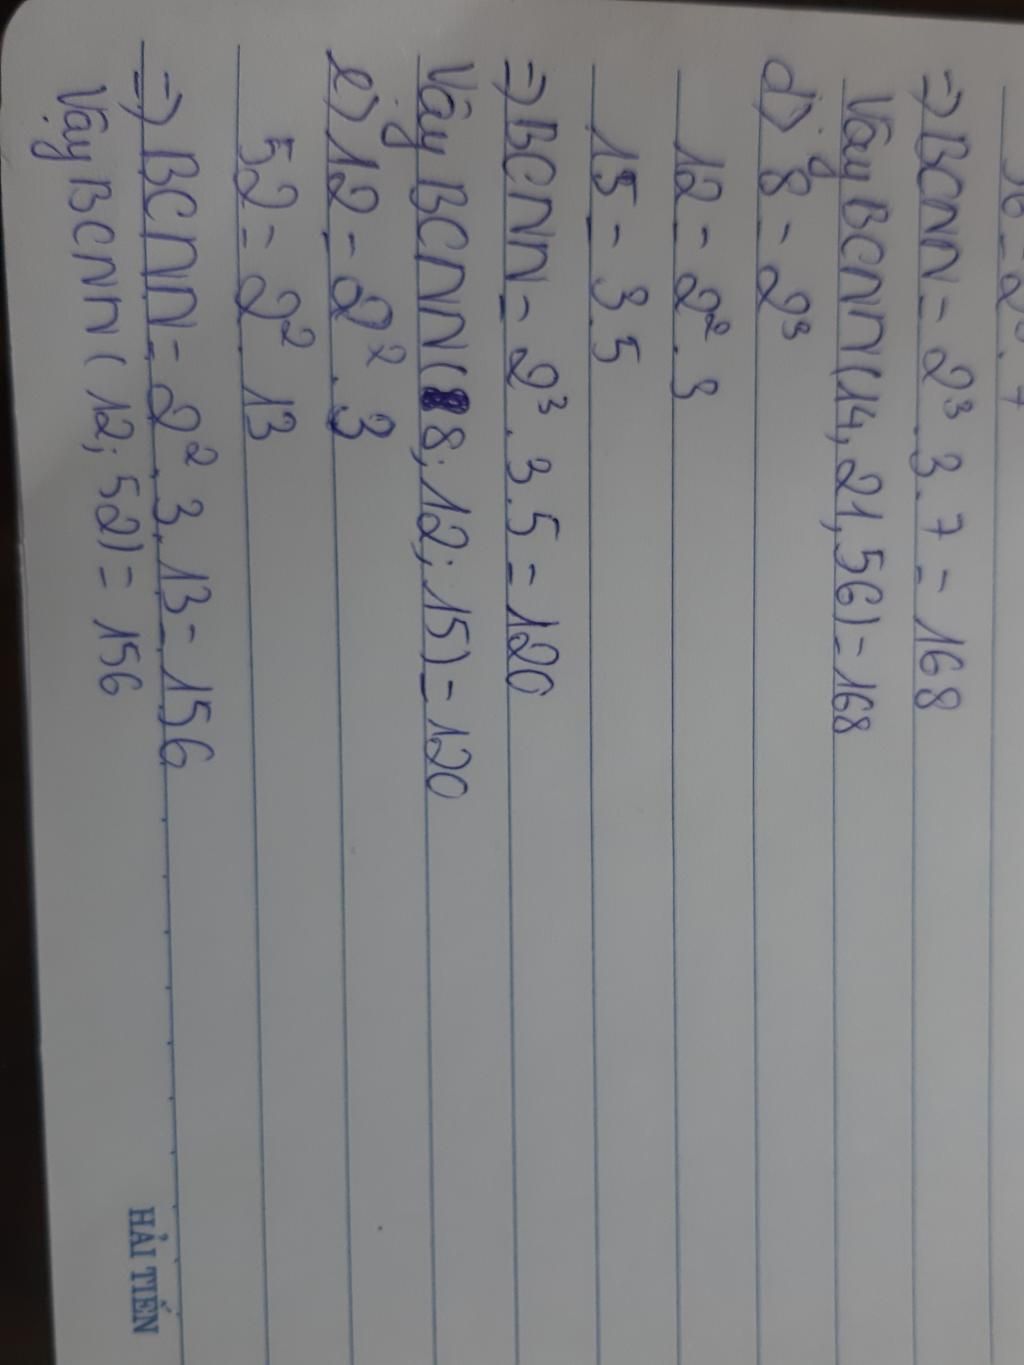 56 = 2³. 7
=> BCNN = 2³. 3. 7 = 168
Vậy BCNN (14, 21, 56) = 168
d) 8 = 2³
12 = 2². 3
15 = 3.5
=> BCNN = 2³. 3. 5 = 120
Vậy BCNN (8; 12; 15) = 120
e) 12 = 2². 3
52 = 2². 13
=> BCNN = 2². 3. 13 = 156
Vậy BCNN ( 12; 52) = 156
HẢI TIẾN